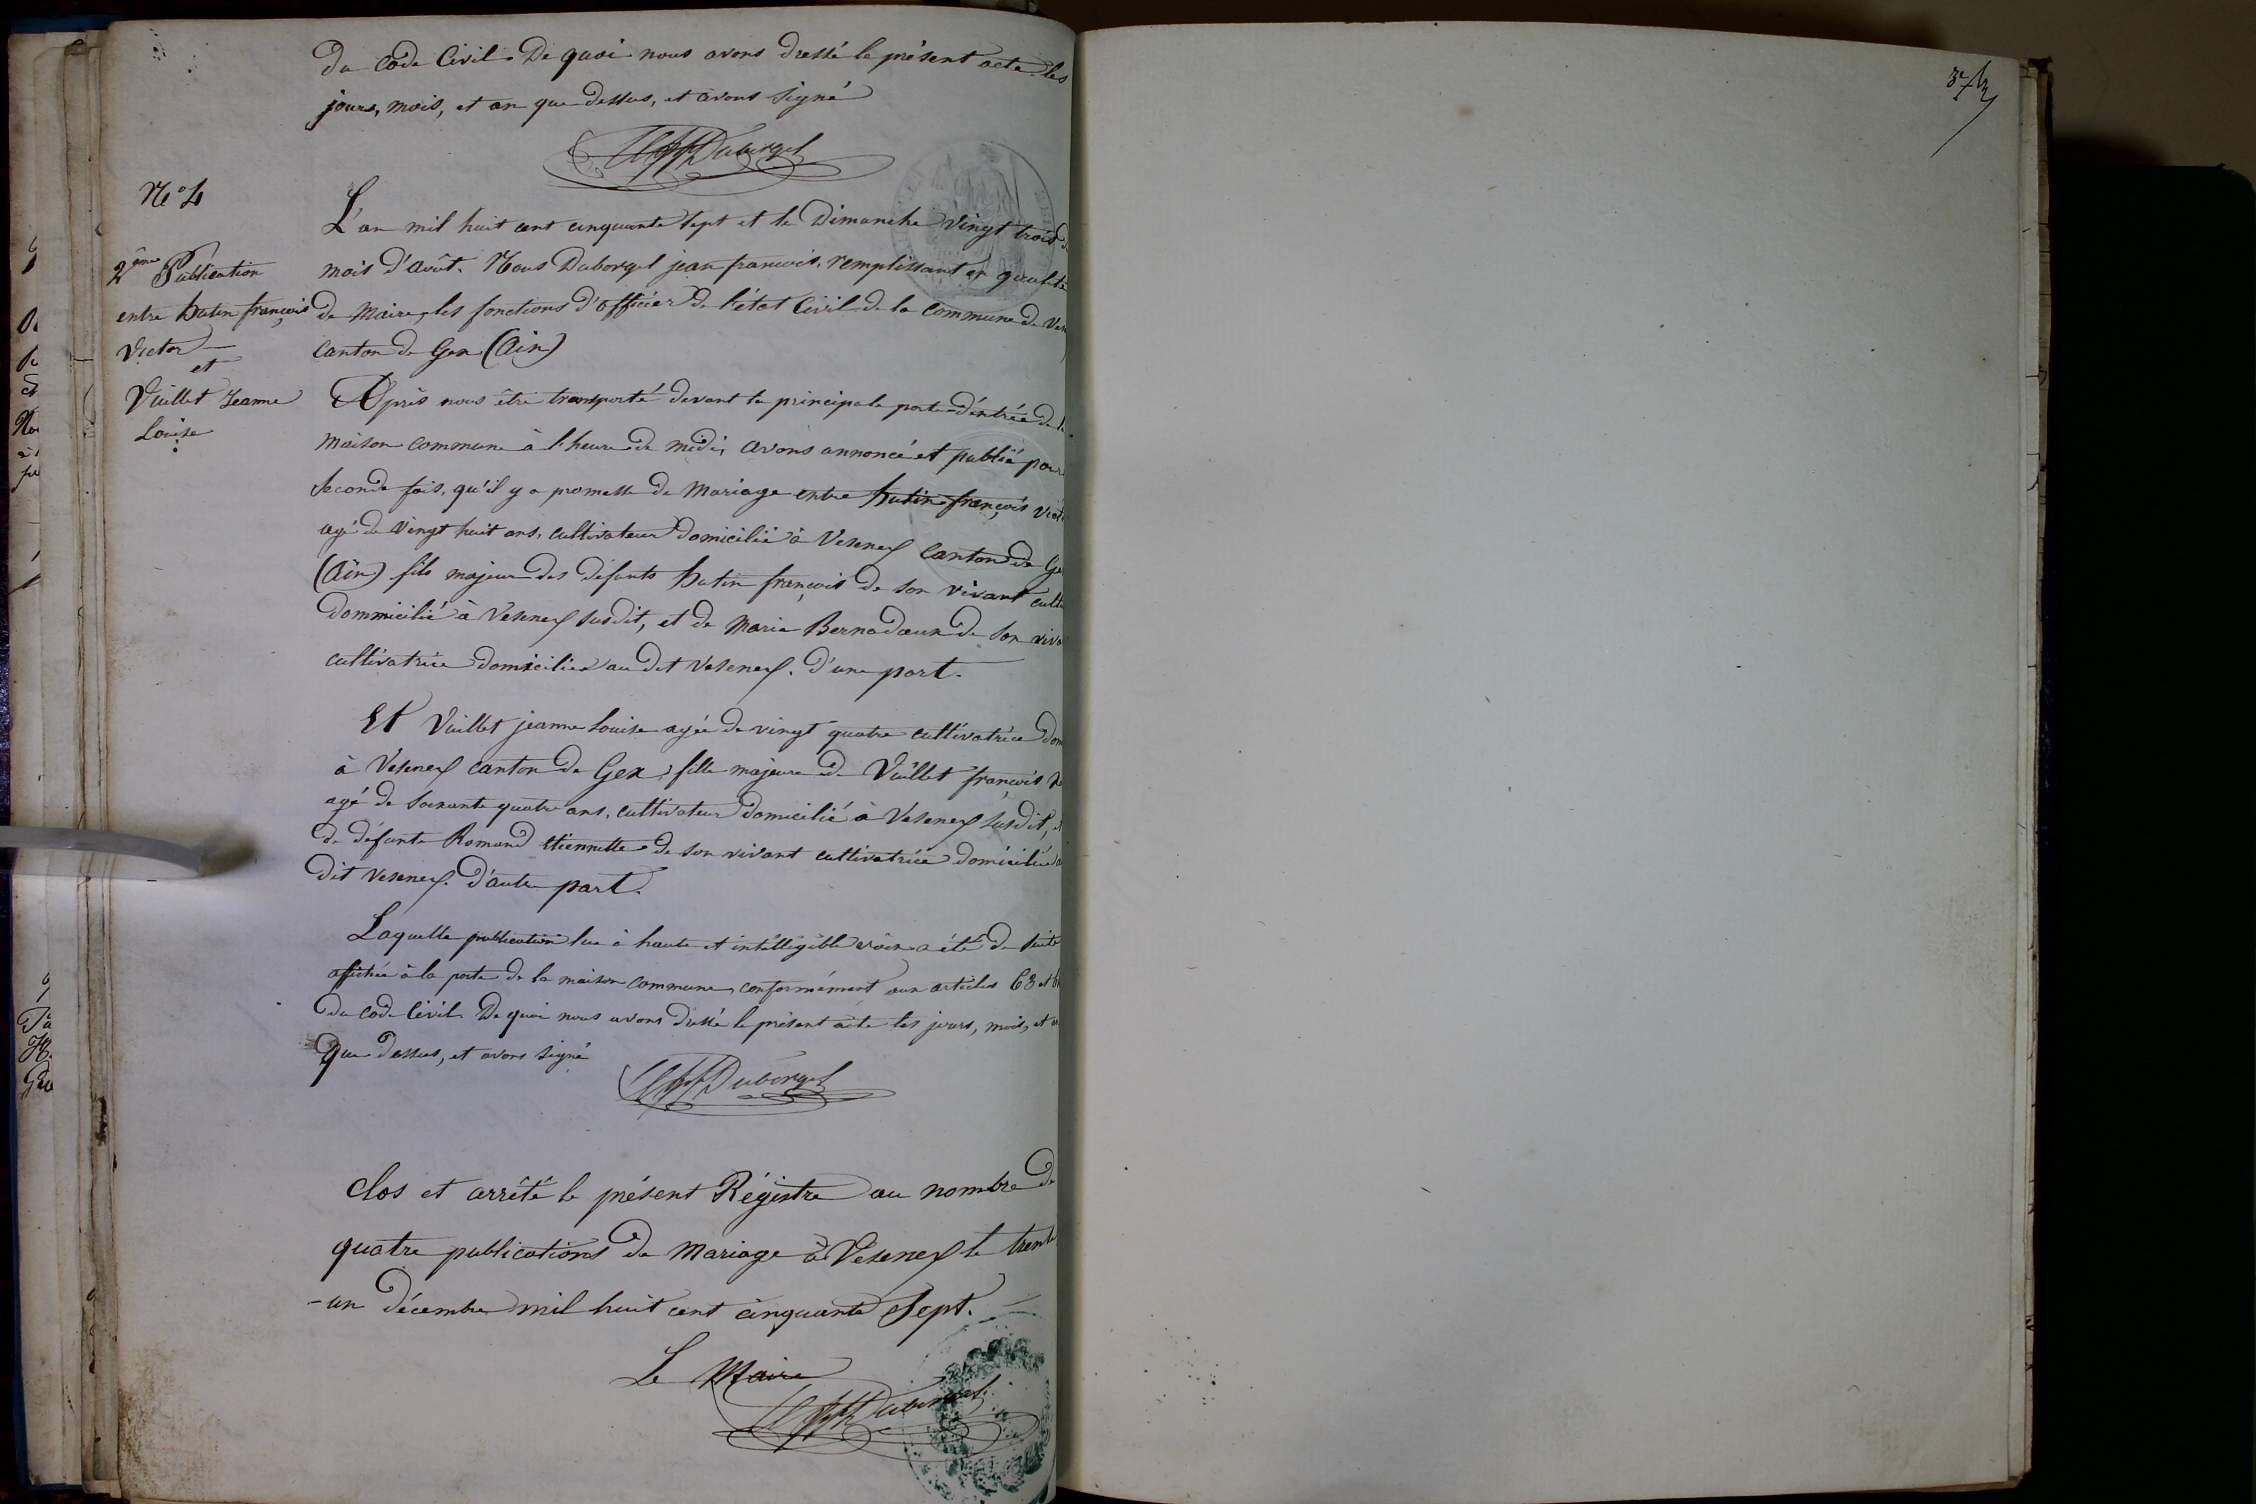 du code Civil. De quoi nous avons dressé le présent acte les
jours, mois, et an que dessus, et avons signé
Duborgel
N° 4
2ème Publication
entre hutin françois
Victor
et
Vuillet Jeanne
Louise
L'an mil huit cent cinquante sept et le Dimanche vingt trois
mois d'août. Nous Duborgel jean francois, remplissant en qualité
de Maire, les fonctions d'officier de l'état Civil de la Commune de
Canton de Gex (Ain)
Après nous être transporté devant la principale porte d'entrée de
maison commune à l'heure de midi, avons annoncé et publié pour
seconde fois, qu'il y a promesse de Mariage entre hutin françois
agé de vingt huit ans, cultivateur domicilié à Vesenex Canton de
(Ain) fils majeur des défunts hutin françois de son vivant
dommicilié à Vesenex susdit, et de Marie Bernadaux de son
cultivatrice domiciliée au dit Vesenex. d'une part.
Et Vuillet jeanne Louise agée de vingt quatre cultivatrice
à Vesenex canton de Gex, fille majeure de Vuillet françois
agé de soixante quatre ans, cultivateur domicilié à Vesenex susdit,
de défunte Romand Etiennette de son vivant cultivatrice domiciliée
dit Vesenex. d'autre part.
Laquelle publication lue à haute et intélligible voix a été de suite
affichée à la porte de la maison commune, conformément aux articles 63 et
du code Civil. De quoi nous avons dressé le présent acte les jours, mois, et
que dessus, et avons signé
Duborgel
Clos et arrêté le présent Régistre au nombre de
quatre publications de Mariage à Vesenex le trente
-un décembre mil huit cent cinquante Sept.
Le Maire
Duborgel